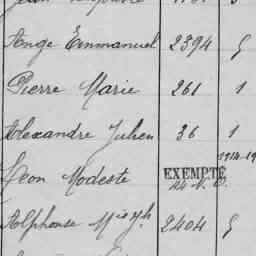 Ange Emmanuel 2394 5
Pierre Marie 261 1
Alexandre Julien 36 1
1914-19
Léon Modeste EXEMPTÉ
Alphonse Mie Jh 2404 5